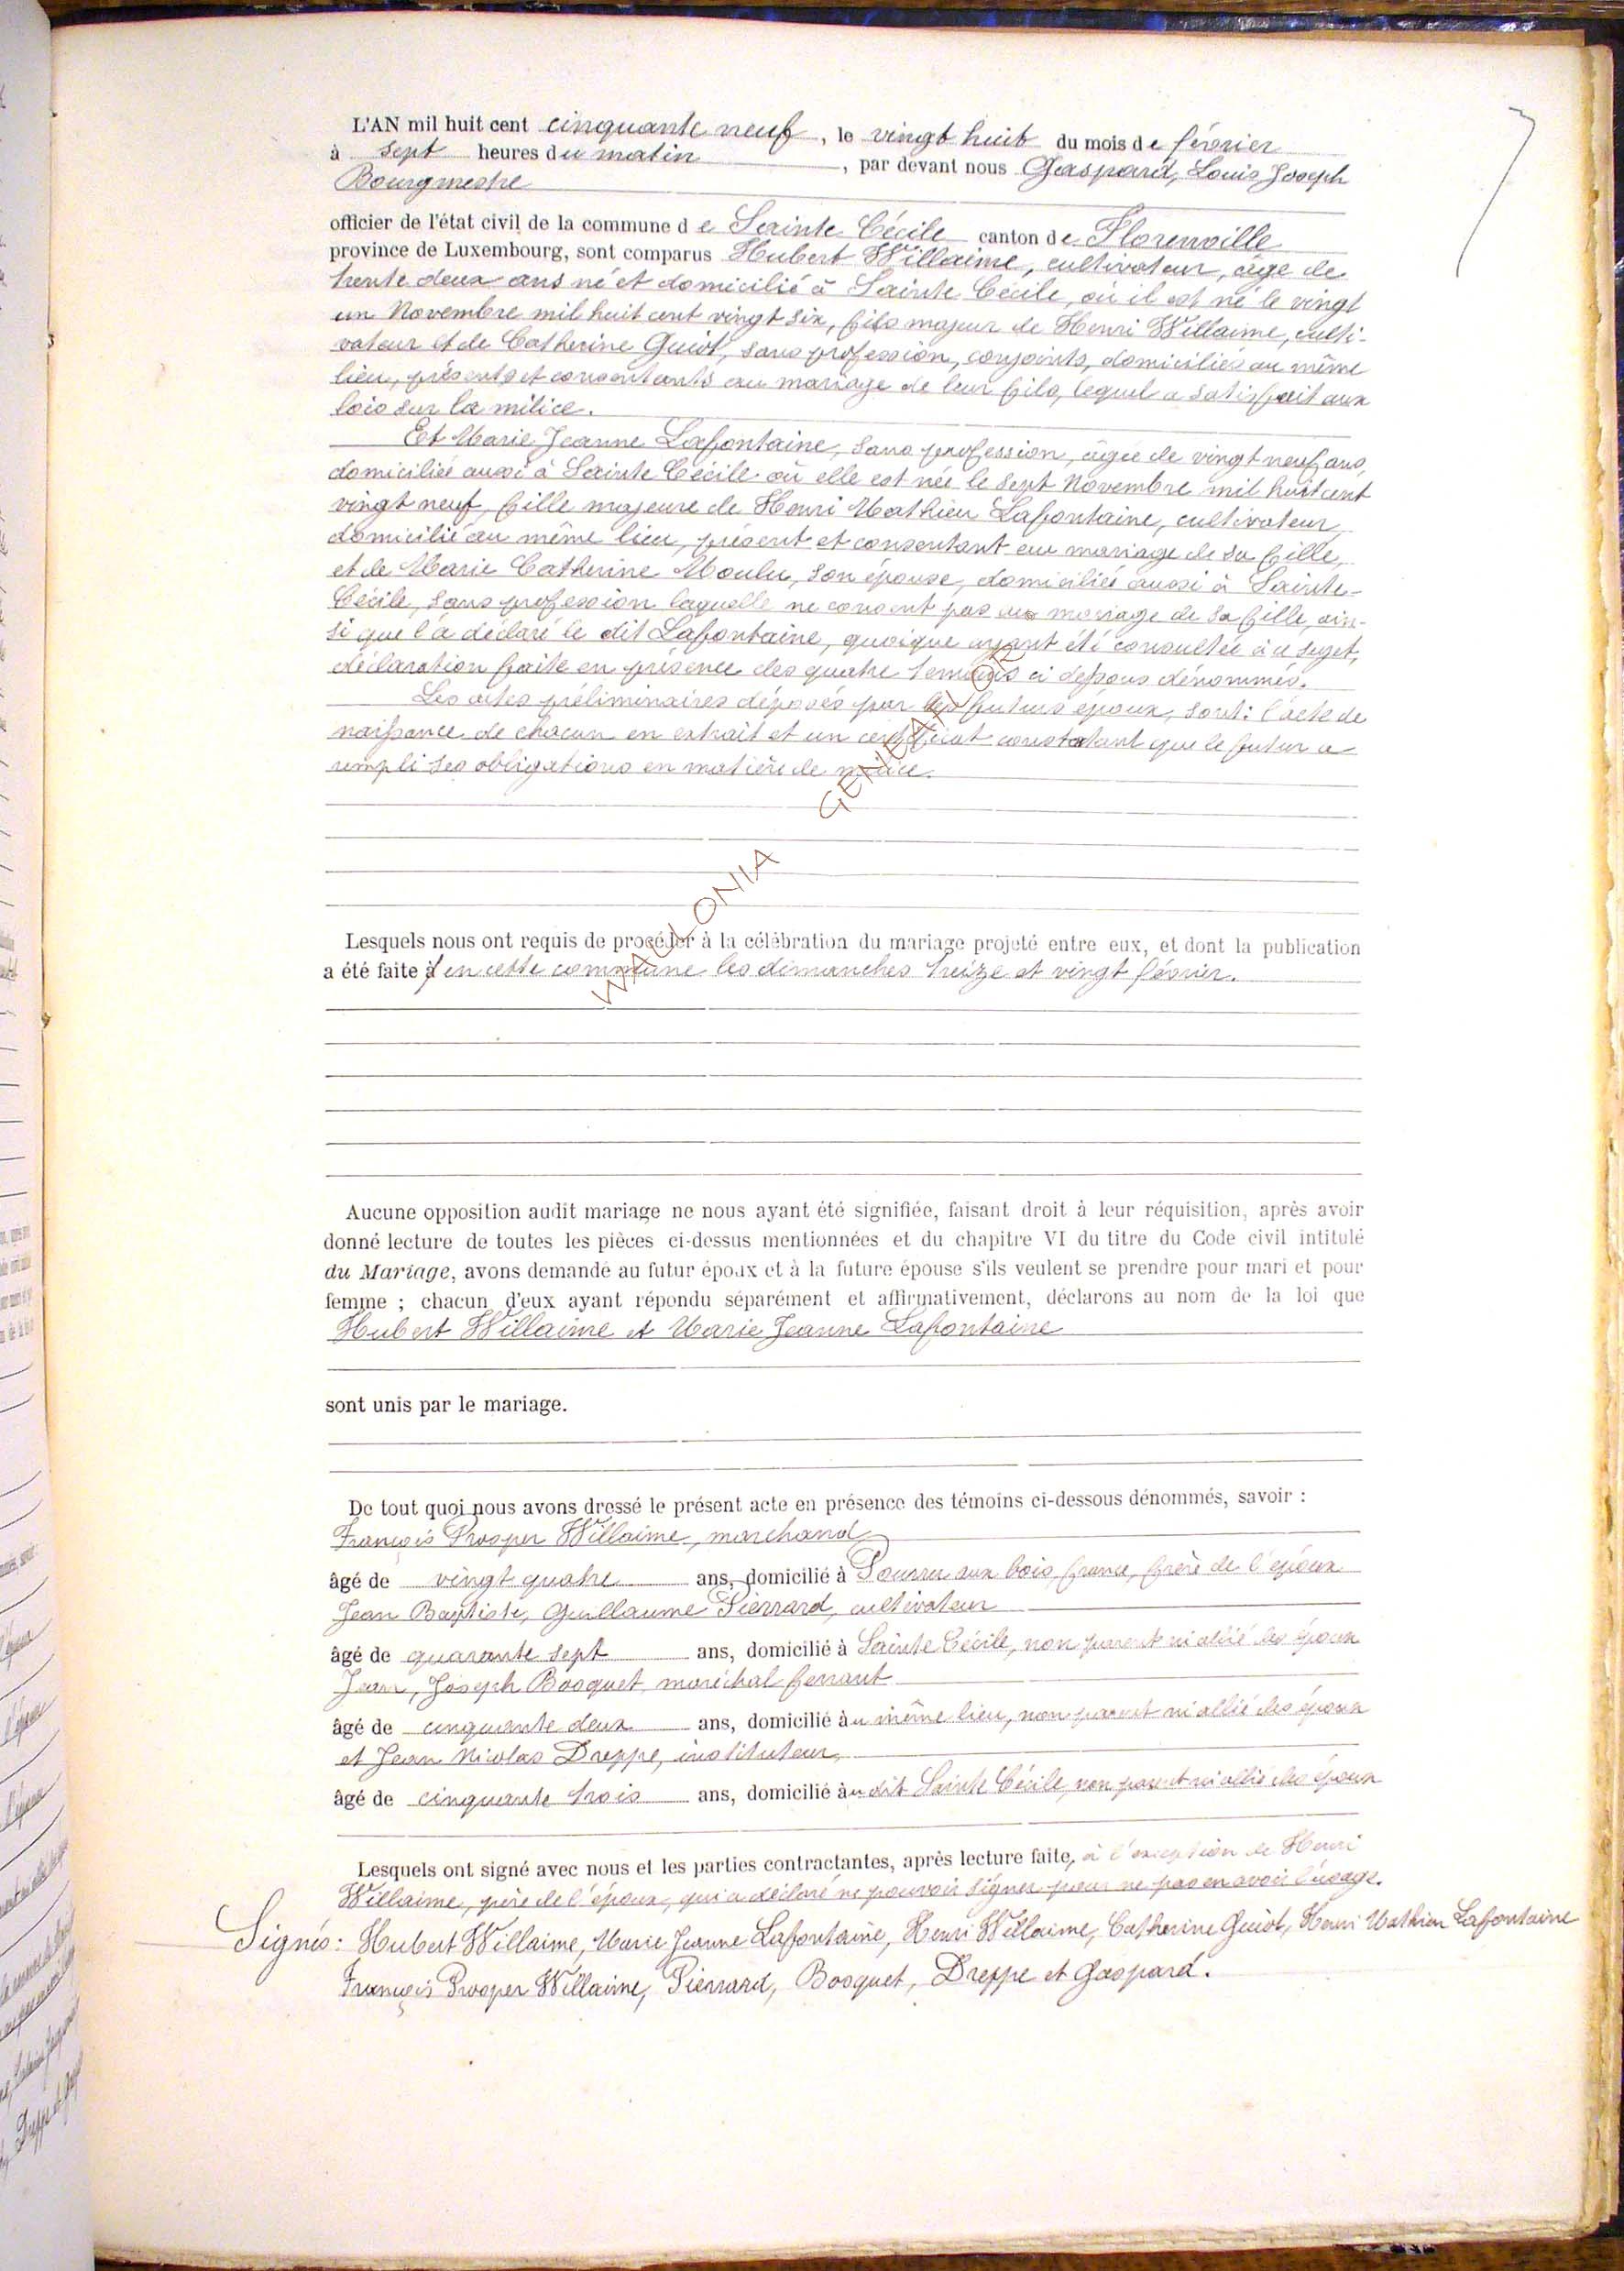 L'AN mil huit cent cinquante neuf, le vingt huit du mois de février
à sept heures du matin, par devant nous Gaspard, Louis Joseph
Bourgmestre
officier de l'état civil de la commune de Sainte Cécile canton de Florenville
province de Luxembourg, sont comparus Hubert Willaime, cultivateur, âgé de
trente deux ans né et domicilié à Sainte Cécile, où il est né le vingt
un Novembre mil huit cent vingt six, fils majeur de Henri Willaime, culti-
vateur et de Catherine Guiot, sans profession, conjoints, domiciliés au même
lieu, présents et consentants au mariage de leur fils, lequel a satisfait aux
lois sur la milice.
Et Marie Jeanne Lafontaine, sans profession, âgée de vingt neuf ans,
domiciliée aussi à Sainte Cécile où elle est née le sept Novembre mil huit cent
vingt neuf, fille majeure de Henri Mathieu Lafontaine, cultivateur,
domicilié au même lieu, présent et consentant au mariage de sa fille,
et de Marie Catherine Moulu, son épouse, domiciliée aussi à Sainte-
Cécile, sans profession laquelle ne consent pas au mariage de sa fille, ain-
si que l'a déclaré le dit Lafontaine, quoique ayant été consultée à ce sujet,
déclaration faite en présence des quatre témoins ci dessous dénommés.
Les actes préliminaires déposés par les futurs époux, sont: l'acte de
naissance de chacun en extrait et un certificat constatant que le futur a
rempli ses obligations en matière de milice.
WALLONIA GENEALOR
Lesquels nous ont requis de procéder à la célébration du mariage projeté entre eux, et dont la publication
a été faite à en cette commune les dimanches treize et vingt février.
Aucune opposition audit mariage ne nous ayant été signifiée, faisant droit à leur réquisition, après avoir
donné lecture de toutes les pièces ci-dessus mentionnées et du chapitre VI du titre du Code civil intitulé
du Mariage, avons demandé au futur époux et à la future épouse s'ils veulent se prendre pour mari et pour
femme ; chacun d'eux ayant répondu séparément et affirmativement, déclarons au nom de la loi que
Hubert Willaime et Marie Jeanne Lafontaine
sont unis par le mariage.
De tout quoi nous avons dressé le présent acte en présence des témoins ci-dessous dénommés, savoir :
François Prosper Willaime, marchand
âgé de vingt quatre ans, domicilié à Pourru aux bois, france, frère de l'époux
Jean Baptiste, Guillaume Pierrard, cultivateur
âgé de quarante sept ans, domicilié à Sainte Cécile, non parent ni allié des époux
Jean, Joseph Bosquet, maréchal ferrant
âgé de cinquante deux ans, domicilié au même lieu, non parent ni allié des époux
et Jean Nicolas Dreppe, instituteur,
âgé de cinquante trois ans, domicilié au dit Sainte Cécile, non parent ni allié des époux
Lesquels ont signé avec nous et les parties contractantes, après lecture faite, à l'exception de Henri
Willaime, père de l'époux, qui a déclaré ne pouvoir signer pour ne pas en avoir l'usage.
Signés: Hubert Willaime, Marie Jeanne Lafontaine, Henri Willaime, Catherine Guiot, Henri Mathieu Lafontaine
François Prosper Willaime, Pierrard, Bosquet, Dreppe et Gaspard.